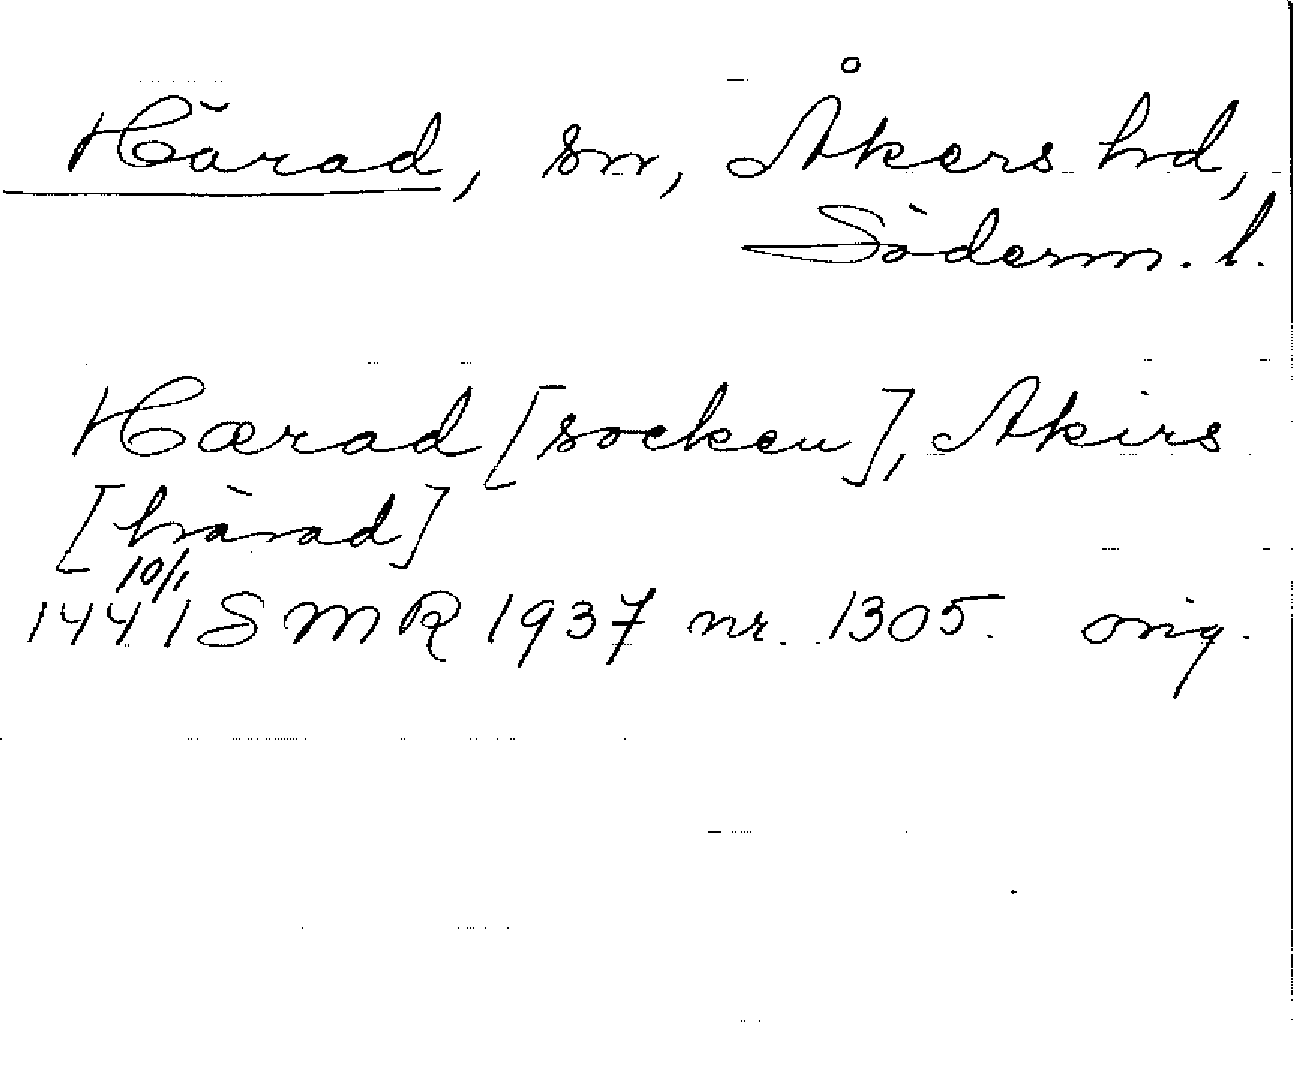 Härad, sn, Åkers hd,
Söderm. l.
Hærad [socken], Akirs
[härad]
10/1
1441 SMR 1937 nr. 1305. orig.